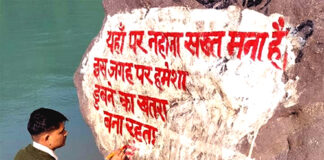 यहाँ पर नहाना सख्त मना हैं
इस जगह पर हमेशा
डुबने का खतरा
बना रहता